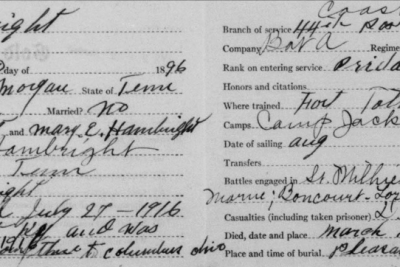 Coast
ight
day of 1896
Morgan State of Tenn
Married? No
and Mary E. Hambright
Hambright
Tenn
ight
July 27 - 1916
Ky and was
thru to Columbus Ohio
Branch of service 44th
Company Bat A Regime
Rank on entering service Priva
Honors and citations
Where trained Fort Tot
Camps Camp Jack
Date of sailing Aug
Transfers
Battles engaged in St. Mihie
Marne; Boncourt-
Casualties (including taken prisoner)
Died, date and place March
Place and time of burial, Pleasa